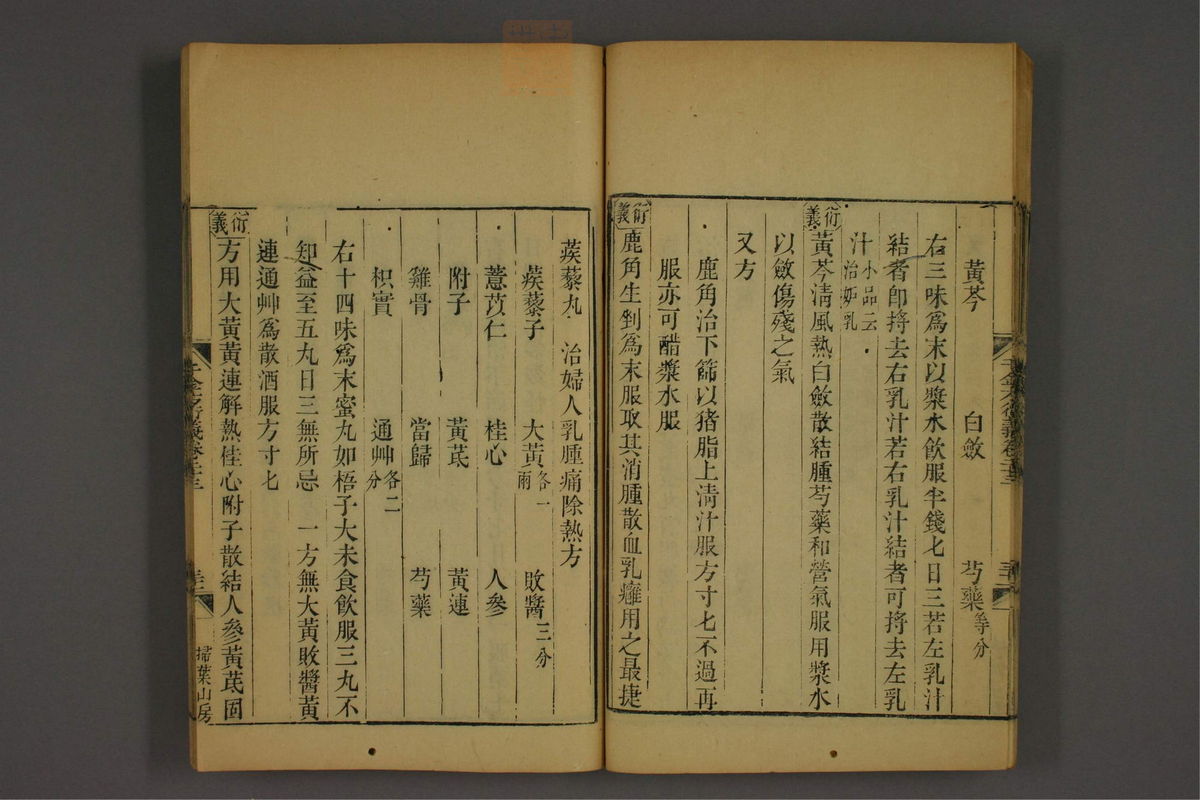 黃芩 白斂 芍藥等分
右三味爲末以漿水飲服半錢匕日三若左乳汁
結者卽捋去右乳汁若右乳汁結者可捋去左乳
汁小品云治妬乳
衍義
黃芩淸風熱白斂散結腫芍藥和營氣服用漿水
以斂傷殘之氣
又方
鹿角治下篩以猪脂上淸汁服方寸匕不過再
服亦可醋漿水服
衍義
鹿角生剉爲末服取其消腫散血乳癰用之最捷
蒺藜丸 治婦人乳腫痛除熱方
蒺藜子 大黃各一兩 敗醬三分
薏苡仁 桂心 人參
附子 黃茋 黃連
雞骨 當歸 芍藥
枳實 通艸各二分
右十四味爲末蜜丸如梧子大未食飲服三丸不
知益至五丸日三無所忌 一方無大黃敗醬黃
連通艸爲散酒服方寸匕
衍義
方用大黃黃連解熱桂心附子散結人參黃茋固
掃葉山房